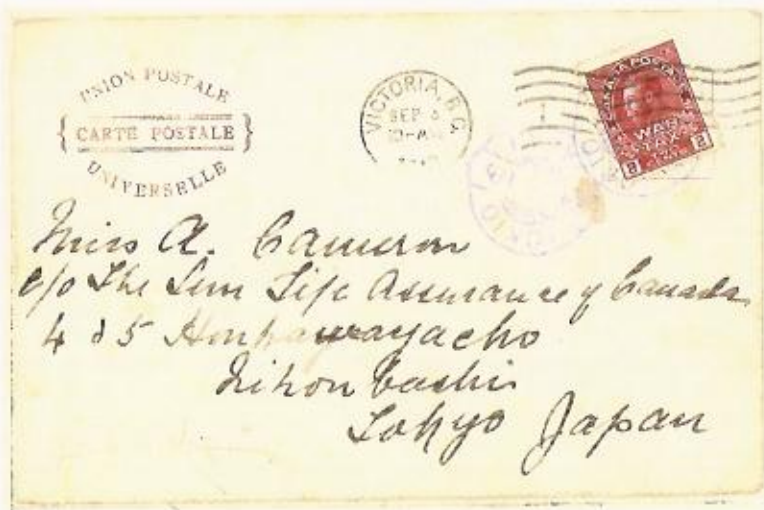 UNION POSTALE
{ CARTE POSTALE }
UNIVERSELLE
VICTORIA, B.C.
SEP
CANADA POSTAGE
WAR
TAX
2 2
Miss A. Cameron
c/o The Sun Life Assurance of Canada
4 & 5
Nihon bashi
Tokyo Japan